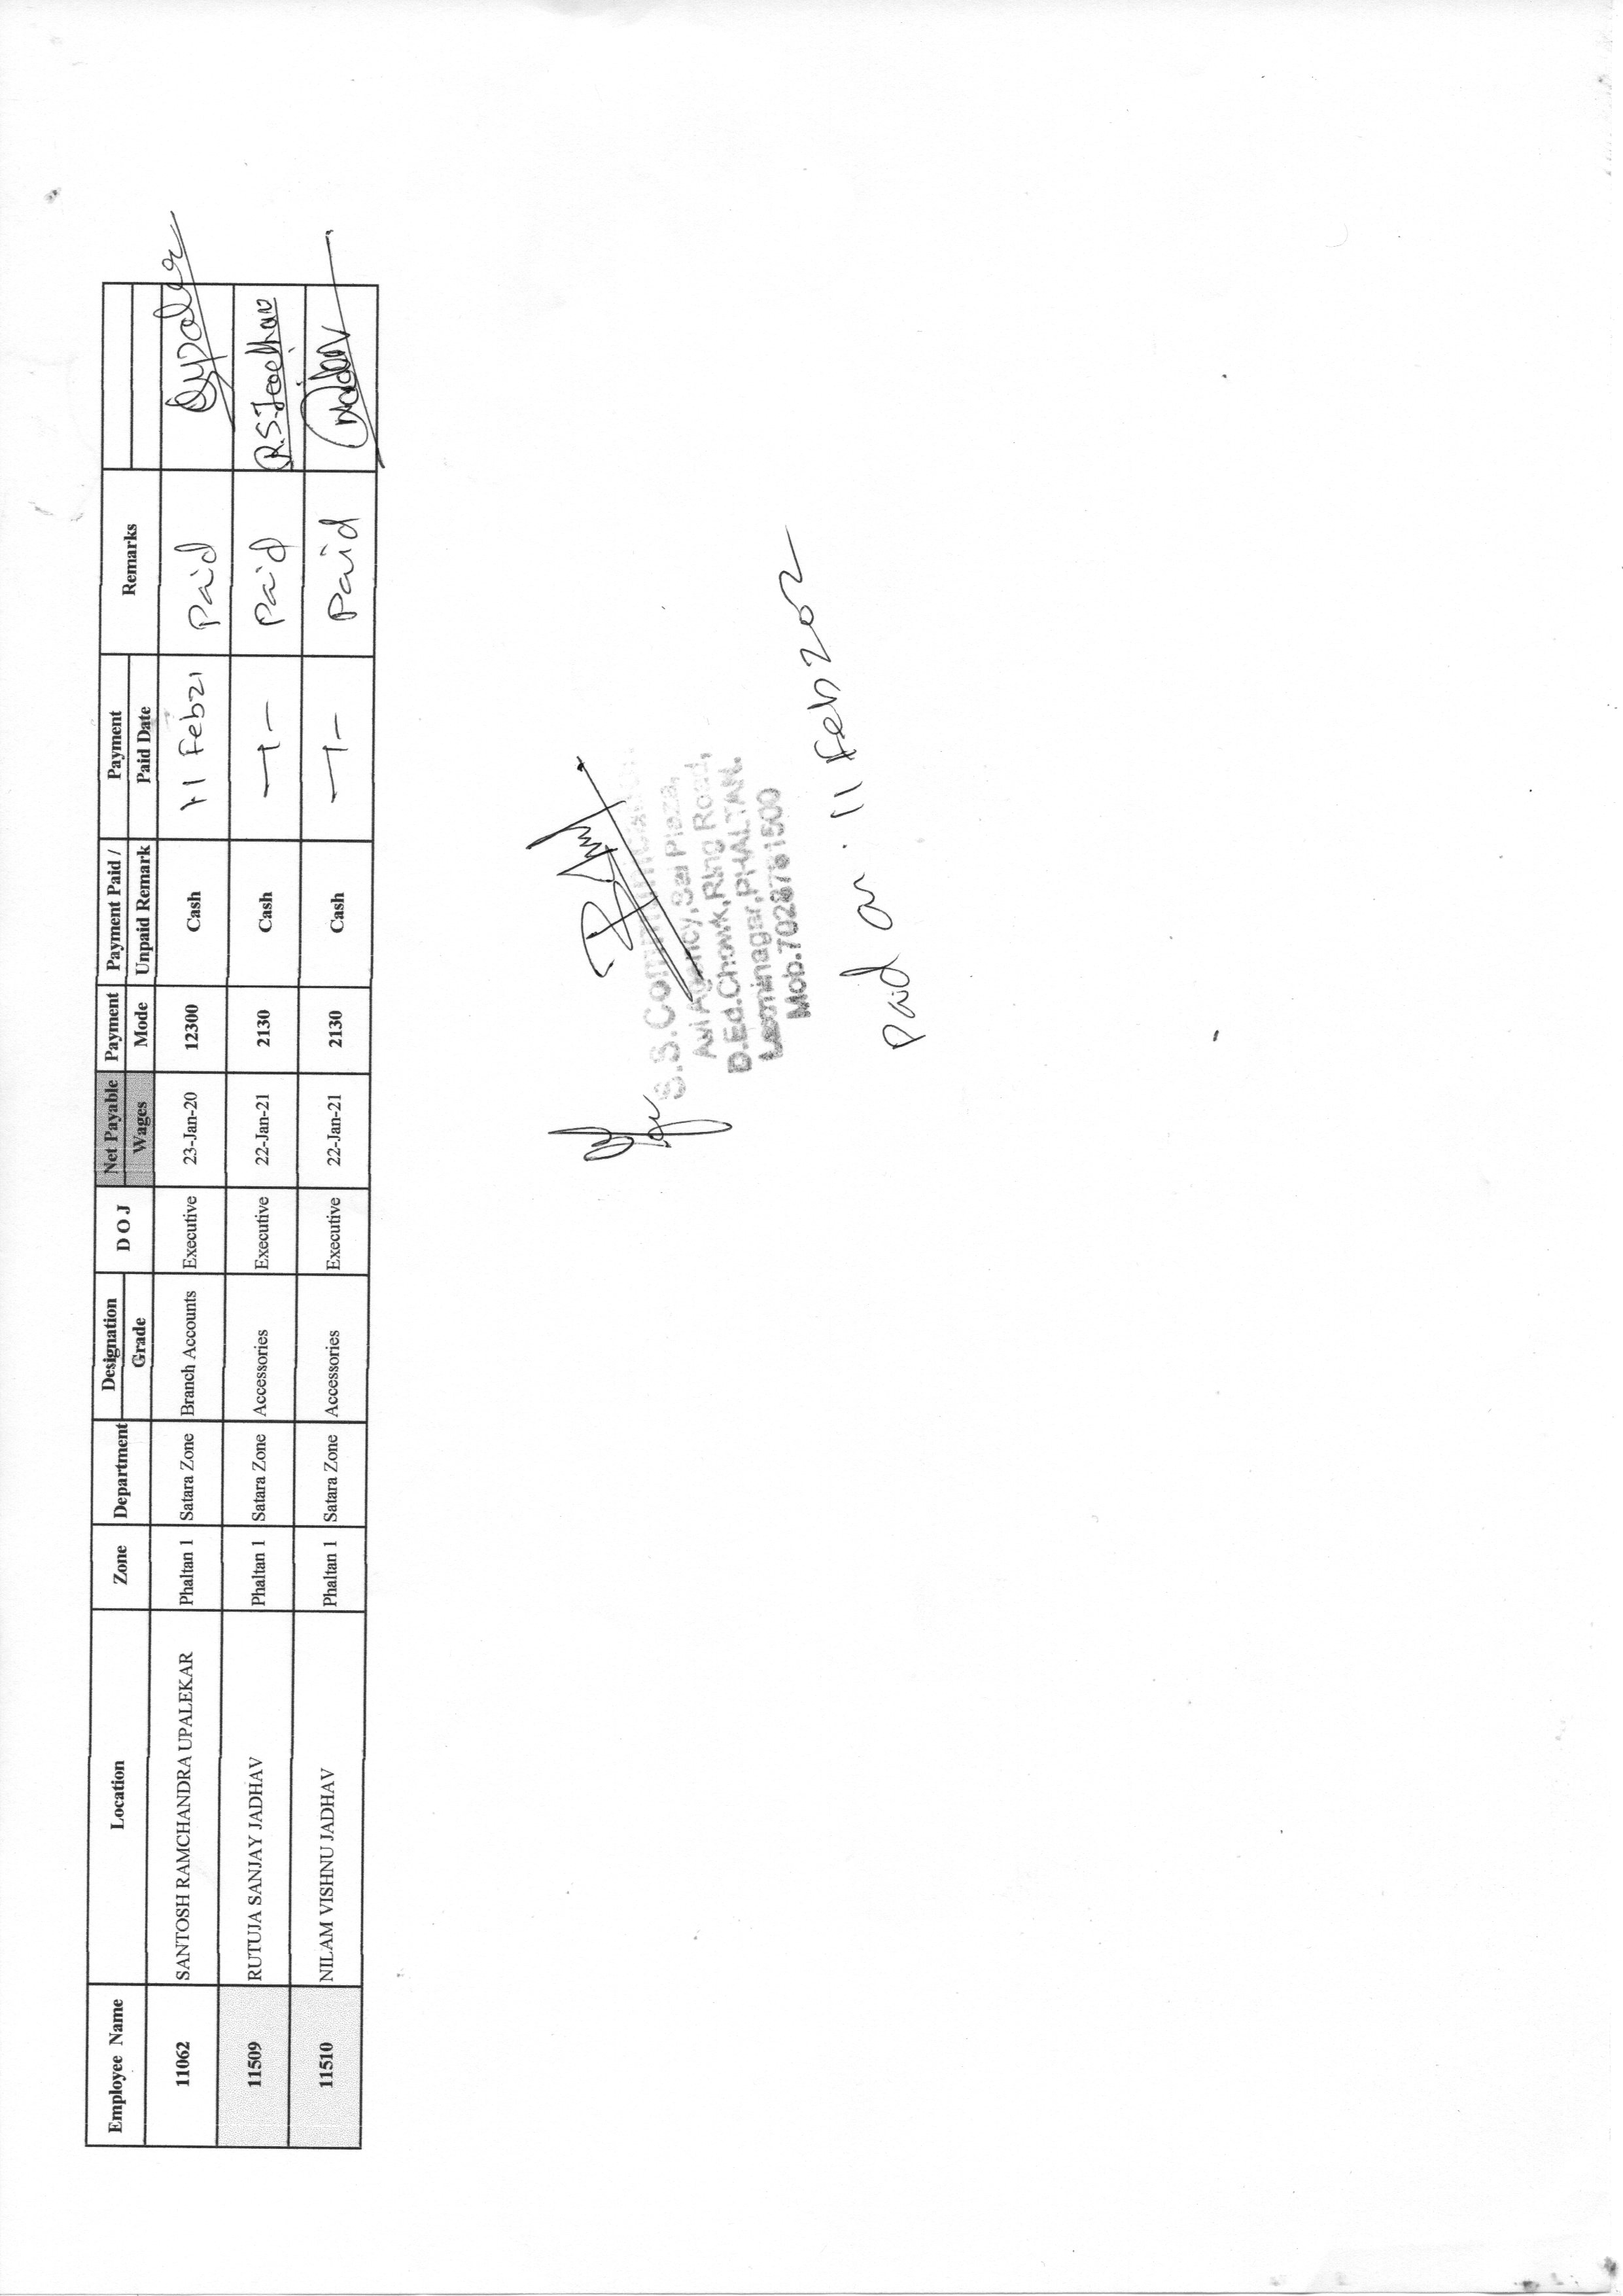 Employee Name Location Zone Department Designation D O J Net Payable Payment Payment Paid / Payment Remarks
Grade Wages Mode Unpaid Remark Paid Date
11062 SANTOSH RAMCHANDRA UPALEKAR Phaltan 1 Satara Zone Branch Accounts Executive 23-Jan-20 12300 Cash 11 Feb21 Paid
11509 RUTUJA SANJAY JADHAV Phaltan 1 Satara Zone Accessories Executive 22-Jan-21 2130 Cash Paid R.S.Jadhav
11510 NILAM VISHNU JADHAV Phaltan 1 Satara Zone Accessories Executive 22-Jan-21 2130 Cash Paid
S.S.Communication
Avi Agency, Sai Plaza,
D.Ed.Chowk, Ring Road,
Laxminagar, PHALTAN.
Paid on 11 Feb 202